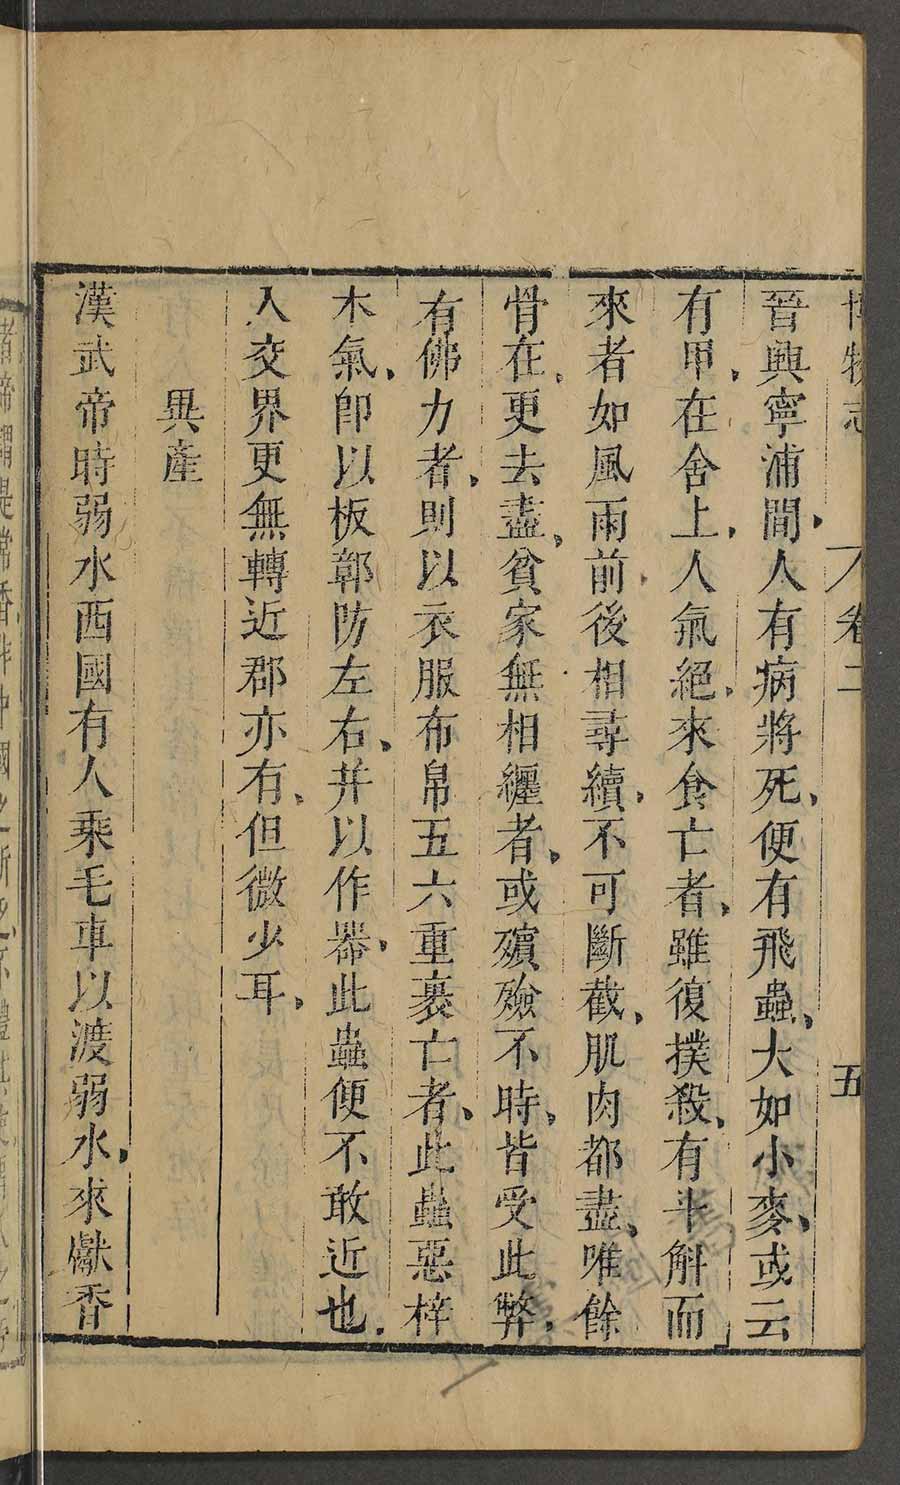 博物志 卷二 五
晉興寧浦間人有病將死便有飛蟲大如小麥或云
有甲在舍上人氣絕來食亡者雖復撲殺有斗斛而
來者如風雨前後相尋續不可斷截肌肉都盡唯餘
骨在更去盡貧家無相纏者或殯殮不時皆受此弊
有佛力者則以衣服布帛五六重裹亡者此蟲惡梓
木氣即以板鄣防左右并以作器此蟲便不敢近也
入交界更無轉近郡亦有但微少耳
異產
漢武帝時弱水西國有人乘毛車以渡弱水來獻香